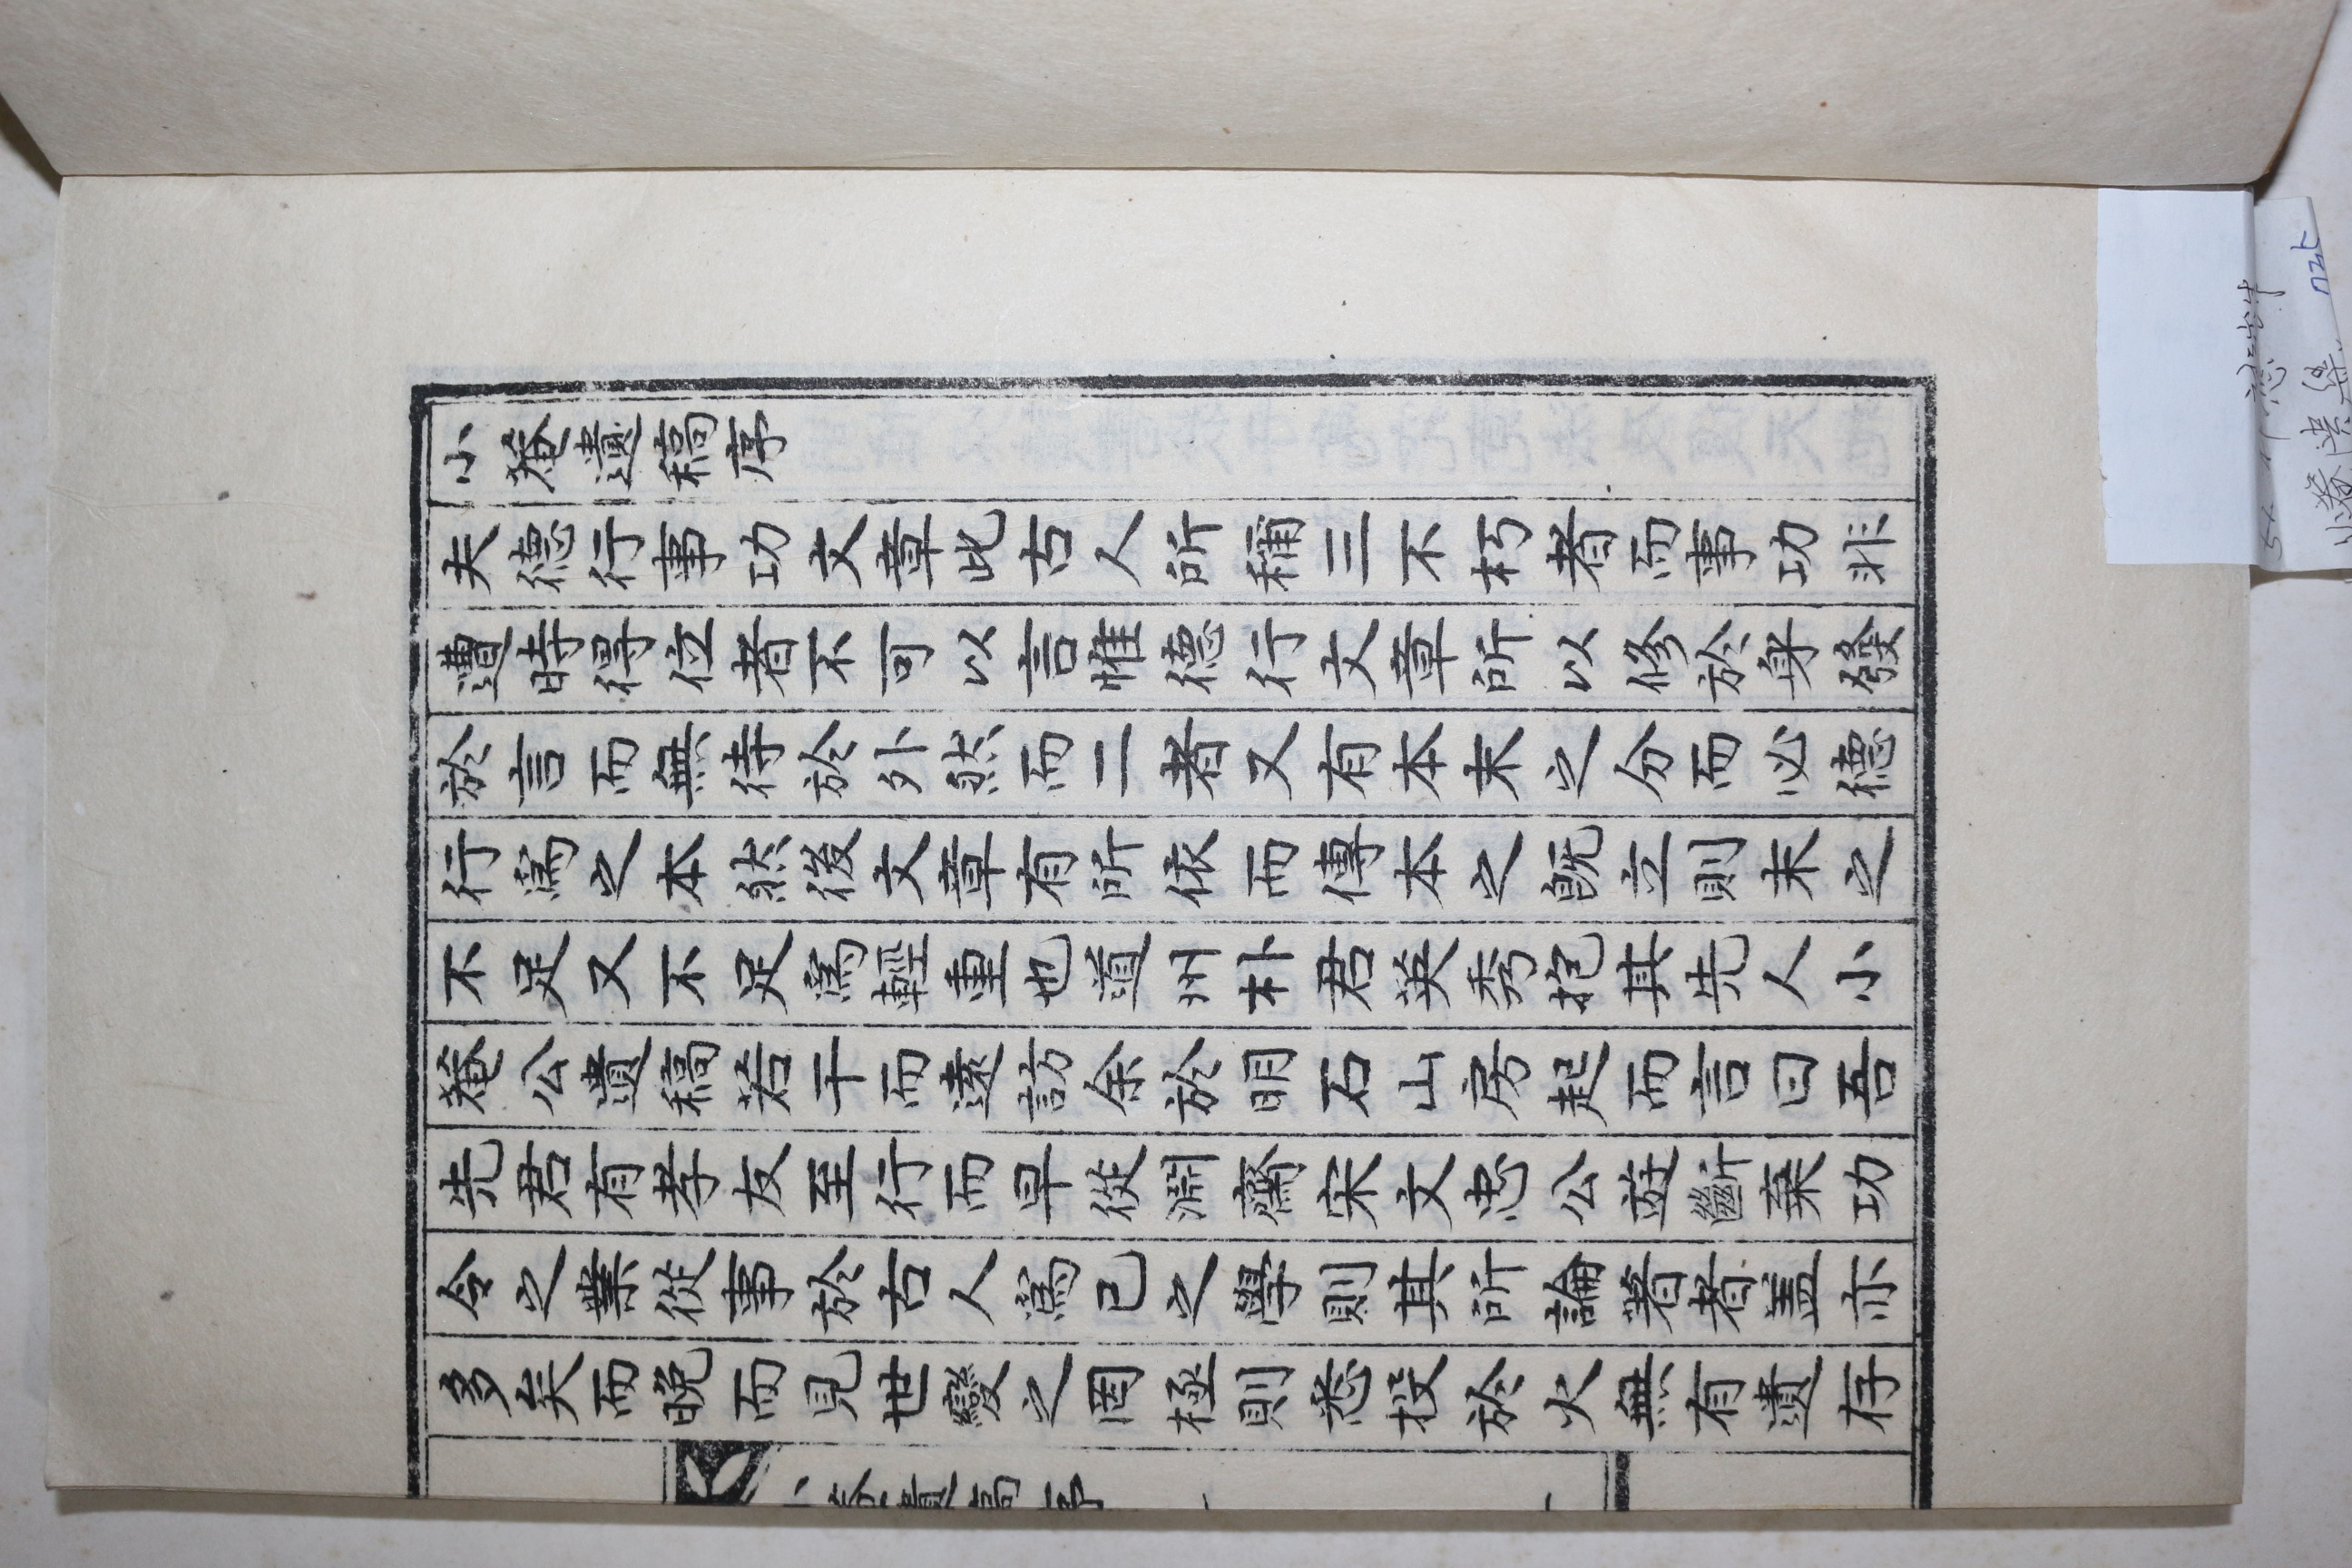 小菴遺稿序
夫德行事功文章此古人所稱三不朽者而事功非
遭時得位者不可以言惟德行文章所以修於身發
於言而無待於外然而二者又有本末之分而必德
行爲之本然後文章有所依而傳本之旣立則末之
不足又不足爲輕重也道州朴君英秀抱其先人小
菴公遺稿若干而遠訪余於明石山房起而言曰吾
先君有孝友至行而早從淵齋宋文忠公遊斷棄功
令之業從事於古人爲己之學則其所論著者盖亦
多矣而晩而見世變之罔極則悉投於火無有遺存
小菴遺稿序
小菴遺集